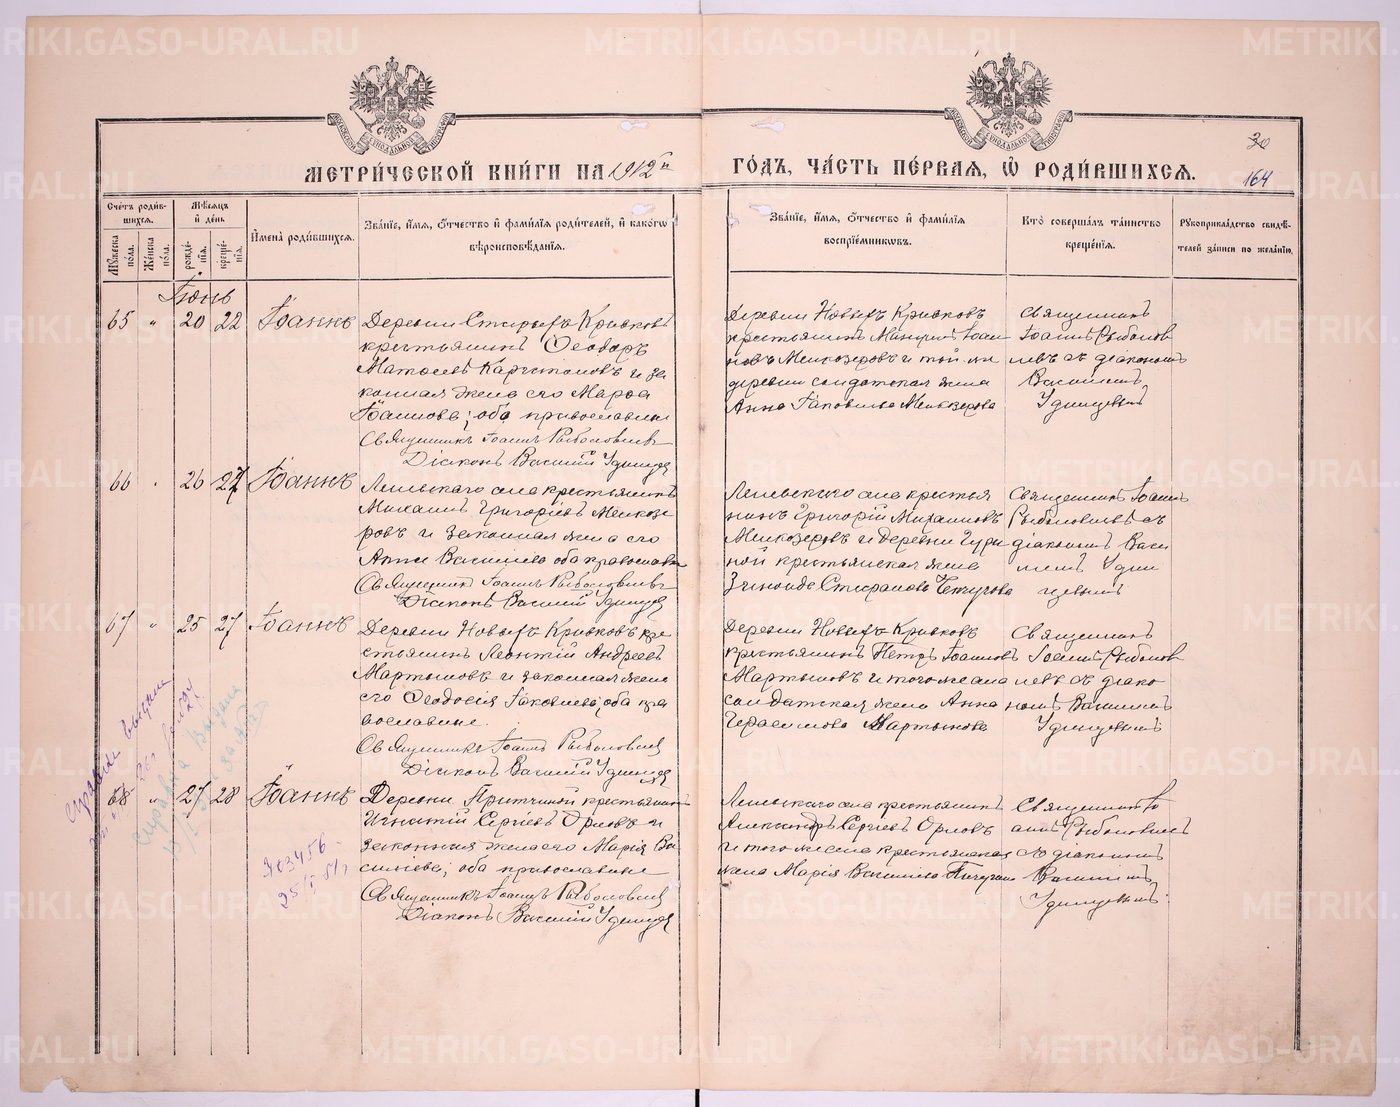 METRIKI.GASO-URAL.RU
МЕТРИЧЕСКОЙ КНИГИ НА 1912й ГОДЪ, ЧАСТЬ ПЕРВАЯ, Ѿ РОДИВШИХСЯ.
30
164
Счетъ родившихся.
Мужеска пола.
Женска пола.
Мѣсяцъ и день
рожденія.
крещенія.
Имена родившихся.
Званіе, имя, отчество и фамилія родителей, и какогѡ вѣроисповѣданія.
Званіе, имя, отчество и фамилія воспріемниковъ.
Кто совершалъ таинство крещенія.
Рукоприкладство свидѣтелей записи по желанію.
Іюнь
65 „ 20 22 Іоаннъ
Деревни Старыхъ Кривковъ
крестьянинъ Ѳеодоръ
законная жена его Марѳа
Іоаннова; оба православные
Священникъ Іоаннъ Рыболовлевъ
Діаконъ Василій Удинцев
Деревни Новыхъ Кривковъ
деревни солдатская жена
Анна Іаковлева Мелкозерова
Священникъ
Іоаннъ Рыболов
левъ съ діакономъ
Василіемъ
Удинцевымъ
66 „ 26 27 Іоаннъ
крестьянинъ
Михаилъ Григоріевъ Мелкозе
ровъ и законная жена его
Анна Василіева оба православные
Священникъ Іоаннъ Рыболовлевъ
Діаконъ Василій Удинцев
села крестья
нинъ Григорій Михаиловъ
Мелкозеровъ и деревни
ной крестьянская жена
Священникъ Іоаннъ
Рыболовлевъ съ
діакономъ Васи
ліемъ Удин
цевымъ
67 „ 25 27 Іоаннъ
Деревни Новыхъ Кривковъ кре
стьянинъ Леонтій Андреевъ
Мартыновъ и законная жена
его Ѳеодосія Іаковлева; оба пра
вославные.
Священникъ Іоаннъ Рыболовлев
Діаконъ Василій Удинцев
Деревни Новыхъ Кривковъ
крестьянинъ Петръ Іоанновъ
Мартыновъ и того же села
солдатская жена Анна
Герасимова Мартынова
Священникъ
Іоаннъ Рыболов
левъ съ діако
номъ Василіемъ
Удинцевымъ
68 „ 27 28 Іоаннъ
Деревни Притчиной крестьянинъ
Игнатій Сергіевъ Орловъ и
законная жена его Марія Ва
силіева; оба православные
Священникъ Іоаннъ Рыболовлев
Діаконъ Василій Удинцев
села крестьянинъ
Александръ Сергіевъ Орловъ
и того же села крестьянская
жена Марія Василіева
Священникъ Іо
аннъ Рыболовлевъ
съ діакономъ
Василіемъ
Удинцевымъ.